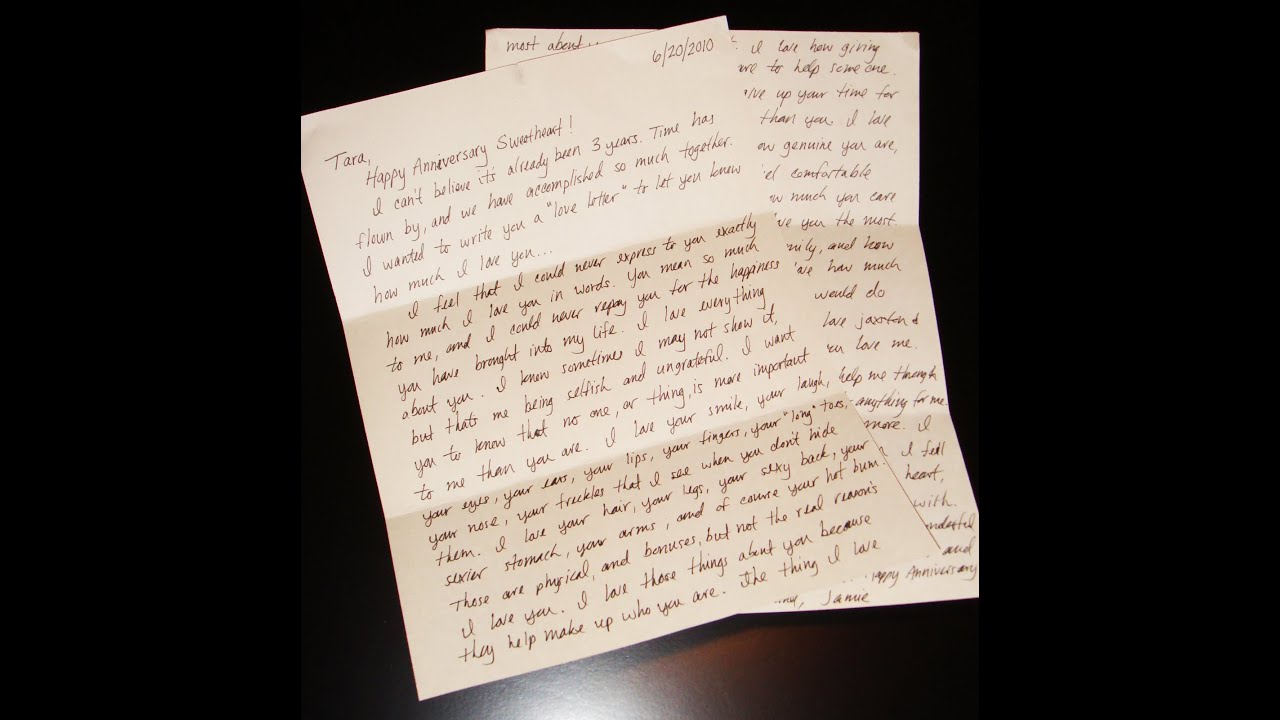 6/20/2010
Tara,
Happy Anniversary Sweetheart!
I can't believe it's already been 3 years. Time has
flown by, and we have accomplished so much together.
I wanted to write you a "love letter" to let you know
how much I love you...
I feel that I could never express to you exactly
how much I love you in words. You mean so much
to me, and I could never repay you for the happiness
you have brought into my life. I love everything
about you. I know sometimes I may not show it,
but thats me being selfish and ungrateful. I want
you to know that no one, or thing, is more important
to me than you are. I love your smile, your laugh,
your eyes, your ears, your lips, your fingers, your "long" toes,
your nose, your freckles that I see when you don't hide
them. I love your hair, your legs, your sexy back, your
sexier stomach, your arms, and of course your hot bum.
Those are physical, and bonuses, but not the real reason's
I love you. I love those things about you because
they help make up who you are. The thing I love
most about...
I love how giving
are to help someone.
up your time for
than you. I love
genuine you are,
comfortable
much you care
you the most.
and how
how much
would do
love jaxston &
love me.
help me through
anything for me
more. I
I feel
heart,
with.
and
Happy Anniversary
Jamie